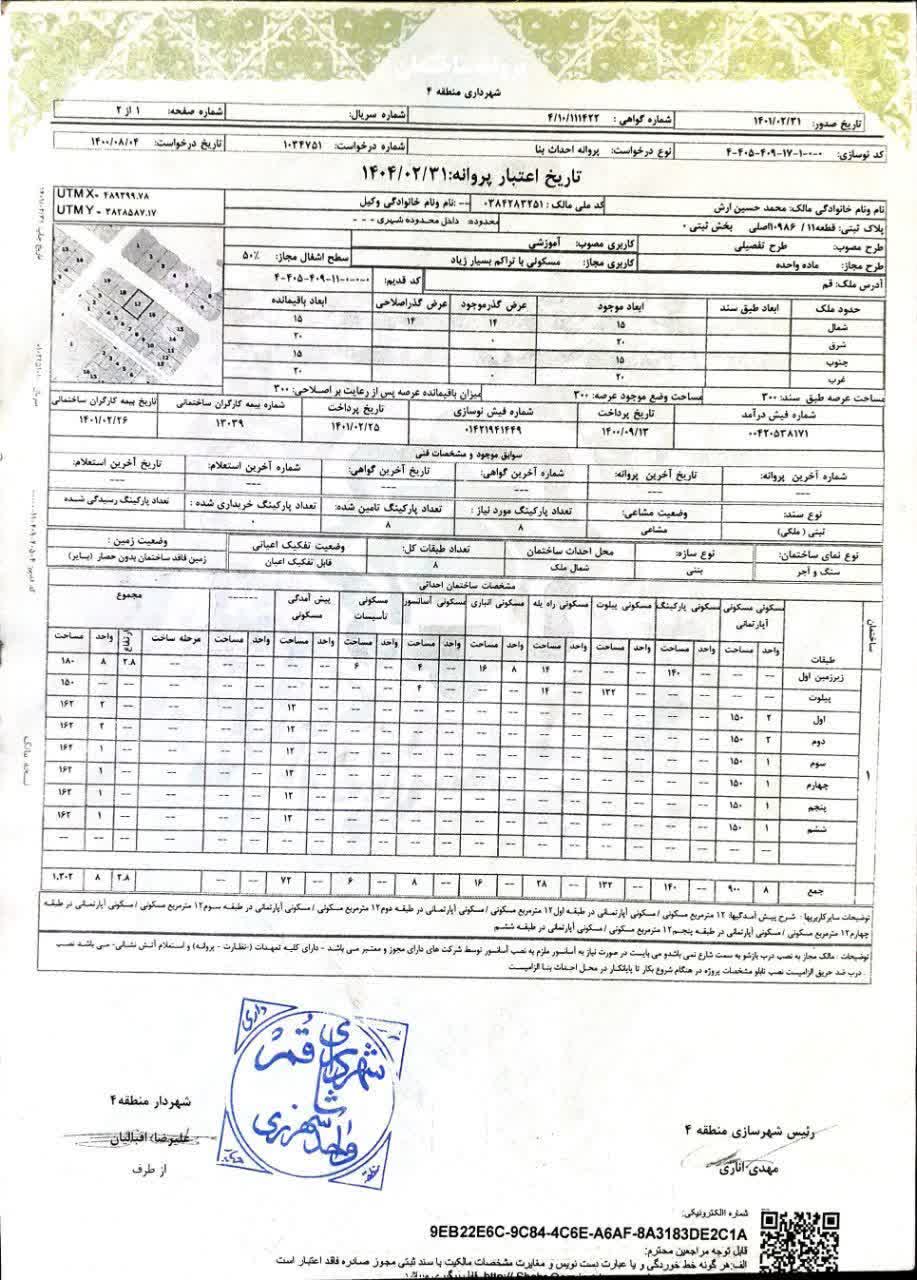 شهرداری منطقه ۴
تاریخ صدور: ۱۴۰۱/۰۲/۳۱ شماره گواهی : ۴/۱۰/۱۱۱۴۲۲ شماره سریال: شماره صفحه: ۱ از ۲
کد نوسازی: ۴-۴۰۵-۴۰۹-۱۷-۱-۰-۰ نوع درخواست: پروانه احداث بنا شماره درخواست: ۱۰۳۴۷۵۱ تاریخ درخواست: ۱۴۰۰/۰۸/۰۴
تاریخ اعتبار پروانه:۱۴۰۴/۰۲/۳۱
نام ونام خانوادگی مالک: محمد حسین ارش کد ملی مالک : ۰۳۸۴۲۸۳۲۵۱ نام ونام خانوادگی وکیل: --
UTM X= ۴۸۹۳۹۹.۷۸
UTM Y= ۳۸۲۸۵۸۷.۱۷
پلاک ثبتی: قطعه۱۱/ ۱۰۹۸۶اصلی بخش ثبتی ۰ محدوده: داخل محدوده شهری - - -
طرح مصوب: طرح تفصیلی کاربری مصوب: آموزشی
طرح مجاز: ماده واحده کاربری مجاز: مسکونی با تراکم بسیار زیاد سطح اشغال مجاز: ۵۰٪
آدرس ملک: قم کد قدیم: ۴-۴۰۵-۴۰۹-۱۱-۰-۰-۰
حدود ملک ابعاد طبق سند ابعاد موجود عرض گذرموجود عرض گذراصلاحی ابعاد باقیمانده
شمال ۱۵ ۱۴ ۱۴ ۱۵
شرق ۲۰ ۰ ۲۰
جنوب ۱۵ ۰ ۱۵
غرب ۲۰ ۰ ۲۰
مساحت عرصه طبق سند: ۳۰۰ مساحت وضع موجود عرصه: ۳۰۰ میزان باقیمانده عرصه پس از رعایت بر اصلاحی: ۳۰۰
شماره فیش درآمد تاریخ پرداخت شماره فیش نوسازی تاریخ پرداخت شماره بیمه کارگران ساختمانی تاریخ بیمه کارگران ساختمانی
۰۰۴۲۰۵۳۸۱۷۱ ۱۴۰۰/۰۹/۱۳ ۰۱۴۲۱۹۴۱۴۴۹ ۱۴۰۱/۰۲/۲۵ ۱۳۰۳۹ ۱۴۰۱/۰۲/۲۶
سوابق موجود و مشخصات فنی
شماره آخرین پروانه: تاریخ آخرین پروانه: شماره آخرین گواهی: تاریخ آخرین گواهی: شماره آخرین استعلام: تاریخ آخرین استعلام:
--- --- --- --- --- ---
نوع سند: وضعیت مشاعی: تعداد پارکینگ مورد نیاز : تعداد پارکینگ تامین شده: تعداد پارکینگ خریداری شده : تعداد پارکینگ رسیدگی شده
ثبتی (ملکی) مشاعی ۸ ۸ ۰
نوع نمای ساختمان: نوع سازه: محل احداث ساختمان تعداد طبقات کل: وضعیت تفکیک اعیانی وضعیت زمین :
سنگ و آجر بتنی شمال ملک ۸ قابل تفکیک اعیان زمین فاقد ساختمان بدون حصار (بایر)
مشخصات ساختمان احداثی
ساختمان طبقات مسکونی آپارتمانی مسکونی پارکینگ مسکونی پیلوت مسکونی راه پله مسکونی انباری مسکونی آسانسور مسکونی تأسیسات پیش آمدگی مسکونی ------ مجموع
واحد مساحت واحد مساحت واحد مساحت واحد مساحت واحد مساحت واحد مساحت واحد مساحت واحد مساحت واحد مساحت مرحله ساخت ارتفاع واحد مساحت
زیرزمین اول -- -- -- ۱۴۰ -- -- -- ۱۴ ۸ ۱۶ -- ۴ -- ۶ -- -- -- -- -- ۲.۸ ۸ ۱۸۰
پیلوت -- -- -- -- -- ۱۳۲ -- ۱۴ -- -- -- ۴ -- -- -- -- -- -- -- -- -- ۱۵۰
اول ۲ ۱۵۰ -- -- -- -- -- -- -- -- -- -- -- -- -- ۱۲ -- -- -- -- ۲ ۱۶۲
دوم ۲ ۱۵۰ -- -- -- -- -- -- -- -- -- -- -- -- -- ۱۲ -- -- -- -- ۲ ۱۶۲
سوم ۱ ۱۵۰ -- -- -- -- -- -- -- -- -- -- -- -- -- ۱۲ -- -- -- -- ۱ ۱۶۲
چهارم ۱ ۱۵۰ -- -- -- -- -- -- -- -- -- -- -- -- -- ۱۲ -- -- -- -- ۱ ۱۶۲
پنجم ۱ ۱۵۰ -- -- -- -- -- -- -- -- -- -- -- -- -- ۱۲ -- -- -- -- ۱ ۱۶۲
ششم ۱ ۱۵۰ -- -- -- -- -- -- -- -- -- -- -- -- -- ۱۲ -- -- -- -- ۱ ۱۶۲
۱
جمع ۸ ۹۰۰ -- ۱۴۰ -- ۱۳۲ -- ۲۸ -- ۱۶ -- ۸ -- ۶ -- ۷۲ -- -- ۲.۸ ۸ ۱,۳۰۲
توضیحات سایرکاربریها : شرح پیش آمدگیها: ۱۲ مترمربع مسکونی / مسکونی آپارتمانی در طبقه اول۱۲ مترمربع مسکونی / مسکونی آپارتمانی در طبقه دوم۱۲ مترمربع مسکونی / مسکونی آپارتمانی در طبقه سوم۱۲ مترمربع مسکونی / مسکونی آپارتمانی در طبقه
چهارم۱۲ مترمربع مسکونی / مسکونی آپارتمانی در طبقه پنجم۱۲ مترمربع مسکونی / مسکونی آپارتمانی در طبقه ششم
توضیحات : مالک مجاز به نصب درب بازشو به سمت شارع نمی باشدو می بایست در صورت نیاز به آسانسور ملزم به نصب آسانسور توسط شرکت های دارای مجوز و معتبر می باشد - دارای کلیه تعهدات (نظارت - پروانه) و استعلام آتش نشانی- می باشد نصب
درب ضد حریق الزامیست نصب تابلو مشخصات پروژه در هنگام شروع بکار تا پایانکار در محل احداث بنا الزامیست
شهرداری قم
واحد شهرسازی
شهردار منطقه ۴
علیرضا اقبالیان
از طرف
رئیس شهرسازی منطقه ۴
مهدی اناری
شماره الکترونیکی:
9EB22E6C-9C84-4C6E-A6AF-8A3183DE2C1A
قابل توجه مراجعین محترم:
الف:هر گونه خط خوردگی و یا عبارت دست نویس و مغایرت مشخصات مالکیت با سند ثبتی مجوز صادره فاقد اعتبار است